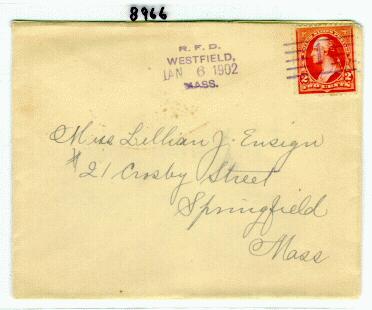 8966
R. F. D.
WESTFIELD,
JAN 6 1902
MASS.
2 2
TWO CENTS
Miss Lillian J. Ensign
#21 Crosby Street
Springfield
Mass